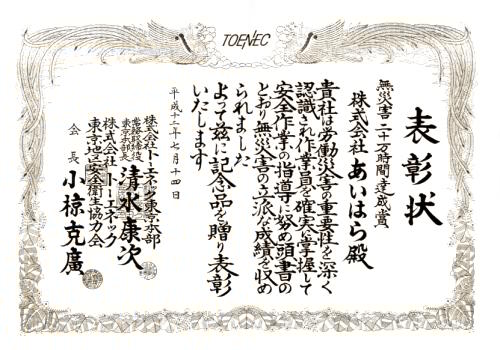 TOENEC
表彰状
無災害二十万時間達成賞
株式会社 あいはら殿
貴社は労働災害の重要性を深く
認識され作業員を確実に掌握して
安全作業の指導に努め頭書の
とおり無災害の立派な成績を収め
られました
よって茲に記念品を贈り表彰
いたします
平成十二年七月十四日
株式会社トーエネック東京本部
常務取締役
東京本部長 清水康次
株式会社トーエネック
東京地区安全衛生協力会
会長 小椋克廣